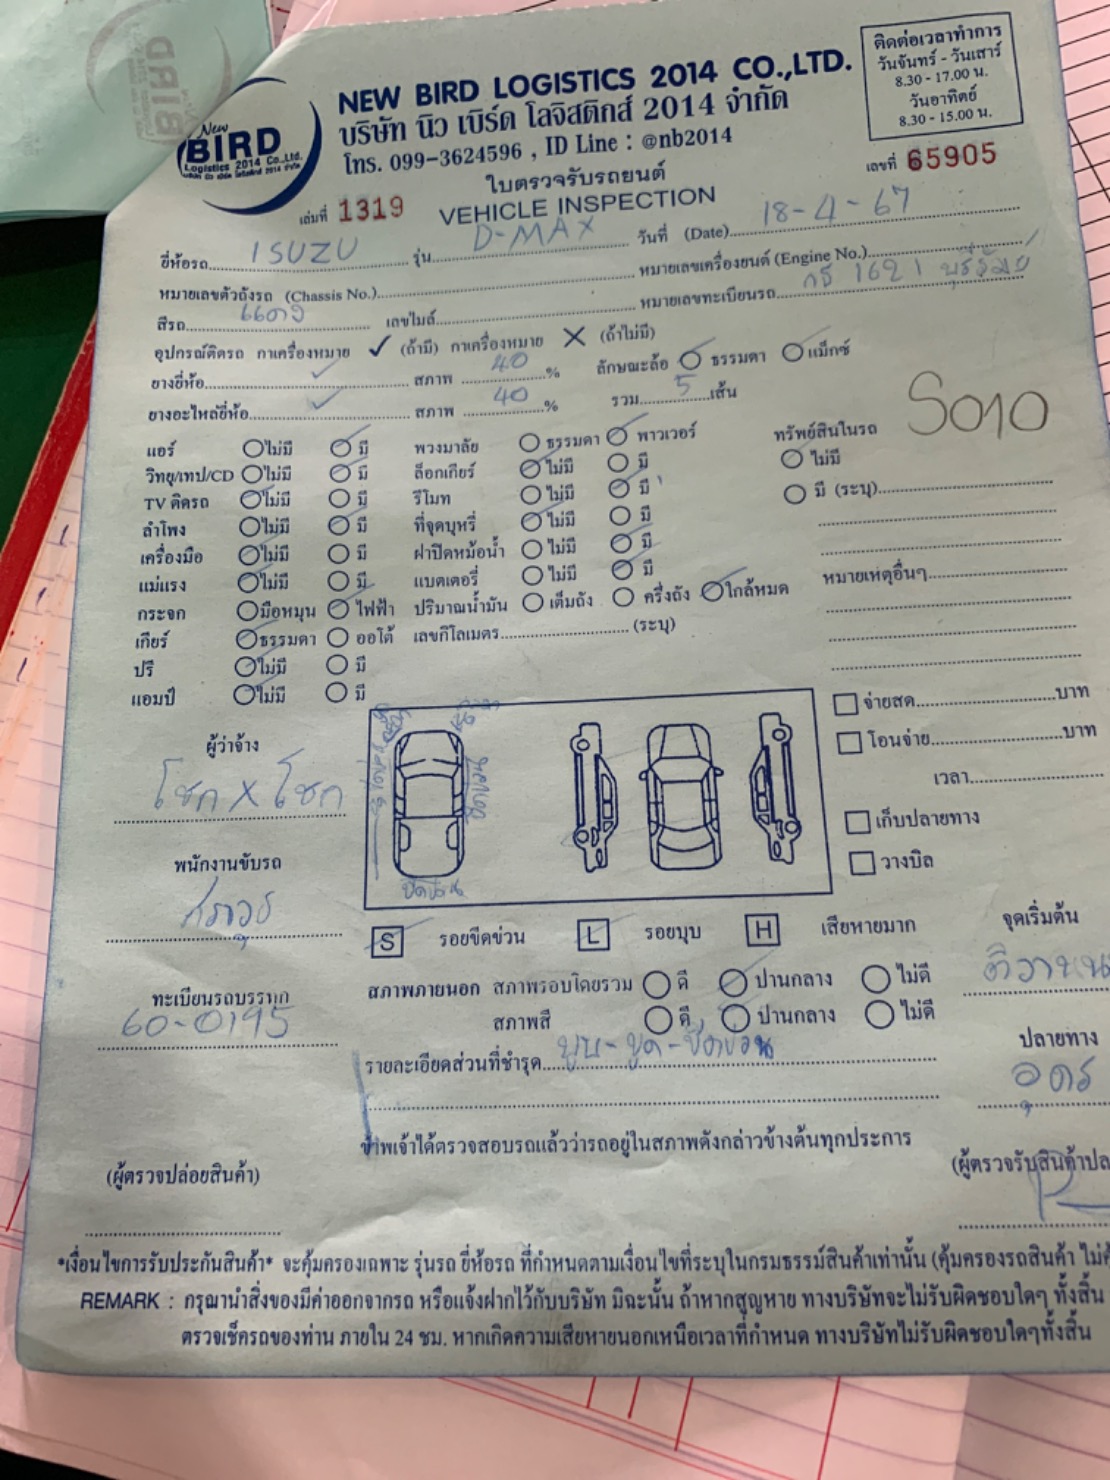 New
BIRD
Logistics 2014 Co.,Ltd.
NEW BIRD LOGISTICS 2014 CO.,LTD.
บริษัท นิว เบิร์ด โลจิสติกส์ 2014 จำกัด
โทร. 099-3624596 , ID Line : @nb2014
ติดต่อเวลาทำการ
วันจันทร์ - วันเสาร์
8.30 - 17.00 น.
วันอาทิตย์
8.30 - 15.00 น.
ใบตรวจรับรถยนต์
เลขที่ 65905
เล่มที่ 1319 VEHICLE INSPECTION
ยี่ห้อรถ ISUZU รุ่น D-MAX วันที่ (Date) 18-4-67
หมายเลขตัวถังรถ (Chassis No.) หมายเลขเครื่องยนต์ (Engine No.)
สีรถ แดง เลขไมล์ หมายเลขทะเบียนรถ 1621 บุรีรัมย์
อุปกรณ์ติดรถ กาเครื่องหมาย ✓ (ถ้ามี) กาเครื่องหมาย X (ถ้าไม่มี)
ยางยี่ห้อ ✓ สภาพ 40 % ลักษณะล้อ ธรรมดา แม็กซ์
ยางอะไหล่ยี่ห้อ ✓ สภาพ 40 % รวม 5 เส้น
S010
แอร์ ไม่มี มี พวงมาลัย ธรรมดา พาวเวอร์ ทรัพย์สินในรถ
วิทยุ/เทป/CD ไม่มี มี ล็อกเกียร์ ไม่มี มี ไม่มี
TV ติดรถ ไม่มี มี รีโมท ไม่มี มี มี (ระบุ)
ลำโพง ไม่มี มี ที่จุดบุหรี่ ไม่มี มี
เครื่องมือ ไม่มี มี ฝาปิดหม้อน้ำ ไม่มี มี
แม่แรง ไม่มี มี แบตเตอรี่ ไม่มี มี หมายเหตุอื่นๆ
กระจก มือหมุน ไฟฟ้า ปริมาณน้ำมัน เต็มถัง ครึ่งถัง ใกล้หมด
เกียร์ ธรรมดา ออโต้ เลขกิโลเมตร (ระบุ)
ปรี ไม่มี มี
แอมป์ ไม่มี มี
จ่ายสด บาท
โอนจ่าย บาท
เวลา
เก็บปลายทาง
วางบิล
ผู้ว่าจ้าง
โชค X โชค
พนักงานขับรถ
ขีดข่วน
S รอยขีดข่วน L รอยบุบ H เสียหายมาก
จุดเริ่มต้น
ติวานนท์
ทะเบียนรถบรรทุก
60-0195
สภาพภายนอก สภาพรอบโดยรวม ดี ปานกลาง ไม่ดี
สภาพสี ดี ปานกลาง ไม่ดี
รายละเอียดส่วนที่ชำรุด บุบ-ขูด-ขีดข่วน
ปลายทาง
อุดร
ข้าพเจ้าได้ตรวจสอบรถแล้วว่ารถอยู่ในสภาพดังกล่าวข้างต้นทุกประการ
(ผู้ตรวจปล่อยสินค้า) (ผู้ตรวจรับสินค้าปล
*เงื่อนไขการรับประกันสินค้า* จะคุ้มครองเฉพาะ รุ่นรถ ยี่ห้อรถ ที่กำหนดตามเงื่อนไขที่ระบุในกรมธรรม์สินค้าเท่านั้น (คุ้มครองรถสินค้า
REMARK : กรุณานำสิ่งของมีค่าออกจากรถ หรือแจ้งฝากไว้กับบริษัท มิฉะนั้น ถ้าหากสูญหาย ทางบริษัทจะไม่รับผิดชอบใดๆ ทั้งสิ้น
ตรวจเช็ครถของท่าน ภายใน 24 ชม. หากเกิดความเสียหายนอกเหนือเวลาที่กำหนด ทางบริษัทไม่รับผิดชอบใดๆทั้งสิ้น